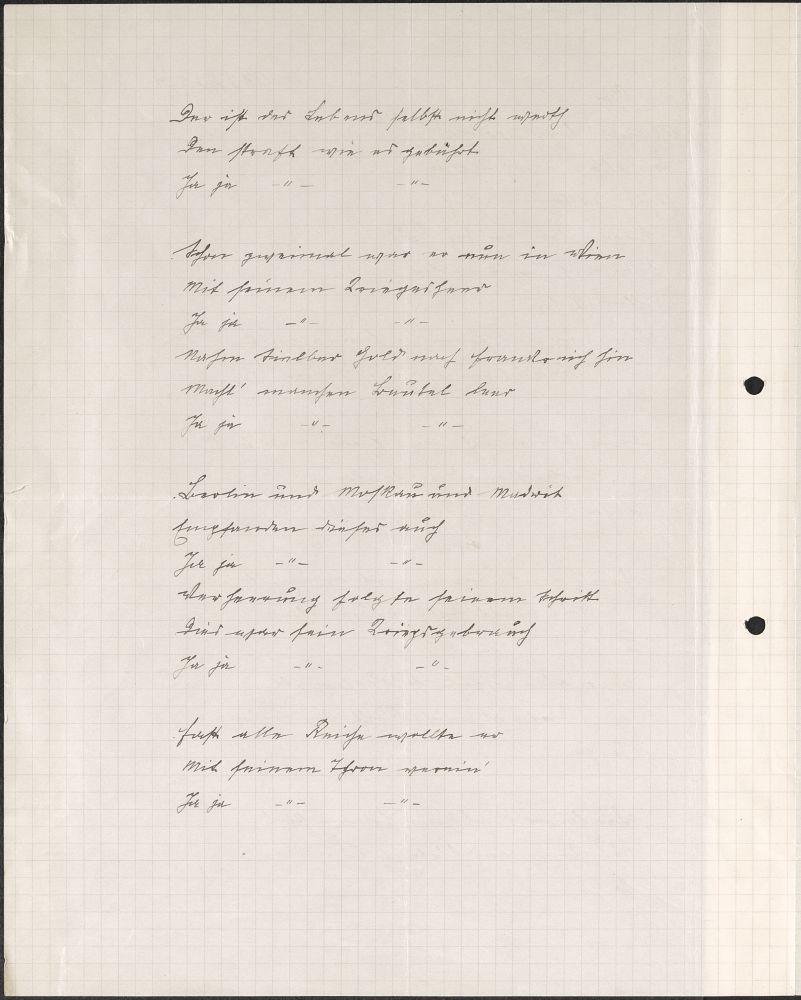 Der ist des Lebens selbst nicht werth
Den straft wie es gebührt
Ja ja -"- -"-
Schon zweimal war er nun in Wien
Mit seinem Kriegesheer
Ja ja -"- -"-
Nahm Silber Gold nach Frankreich hin
Macht' manchen Beutel leer
Ja ja -"- -"-
Berlin und Moskau und Madrit
Empfanden dieses auch
Ja ja -"- -"-
Verheerung folgte seinem Schritt
Dies war sein Kriegsgebrauch
Ja ja -"- -"-
Fast alle Reiche wollte er
Mit seinem Thron verein'
Ja ja -"- -"-